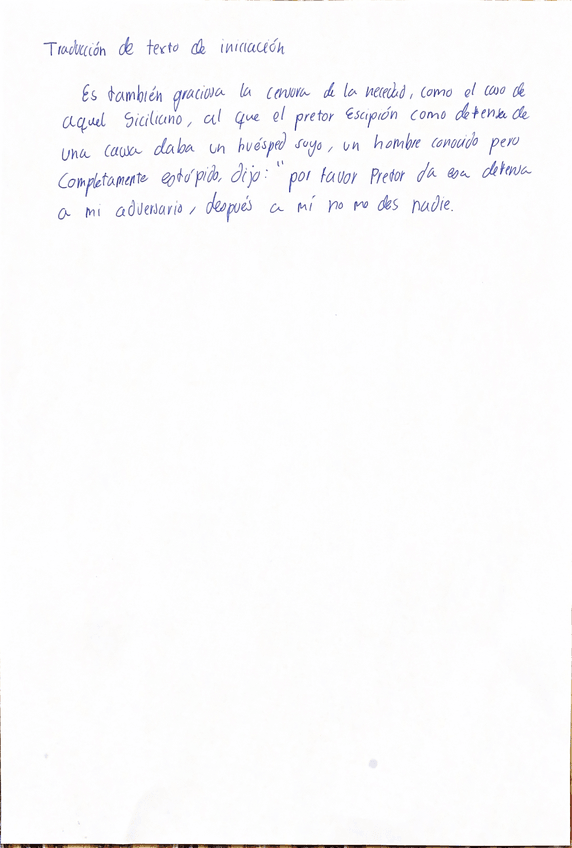 Traducción de texto de iniciación
Es también graciosa la censura de la necedad, como el caso de
aquel Siciliano, al que el pretor Escipión como defensa de
una causa daba un huésped suyo, un hombre conocido pero
completamente estúpido, dijo: "por favor Pretor da esa defensa
a mi adversario, después a mí no me des nadie.